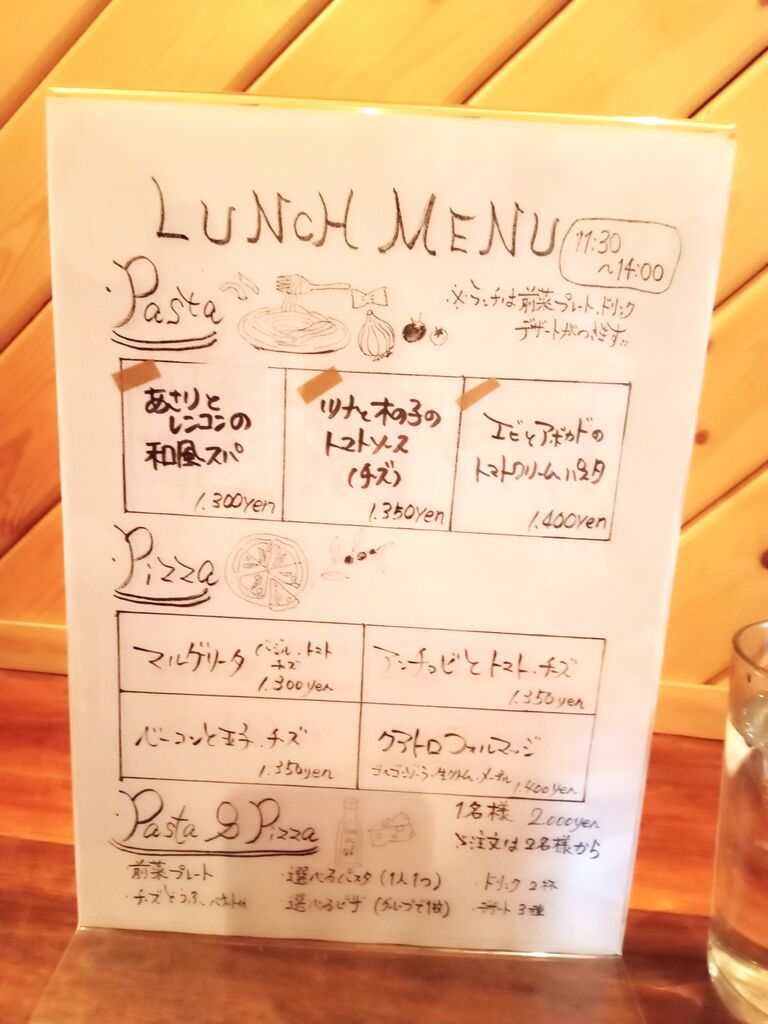 LUNCH MENU
11:30
～14:00
・Pasta
※ランチは前菜プレート.ドリンク
デザートがつきます
あさりと
レンコンの
和風スパ
1.300yen
ツナと木の子の
トマトソース
(チーズ)
1.350yen
エビとアボカドの
トマトクリームパスタ
1.400yen
・Pizza
マルゲリータ バジル.トマト
チーズ
1.300yen
アンチョビとトマト.チーズ
1.350yen
ベーコンと玉子.チーズ
1.350yen
クアトロフォルマッジ
ゴルゴンゾーラ.生クリーム.メープル
1.400yen
・Pasta & Pizza
1名様 2.000yen
注文は2名様から
・前菜プレート ・選べるパスタ(1人1つ) ・ドリンク2杯
・チーズとうふ ・選べるピザ(グループで1枚) ・デザート3種